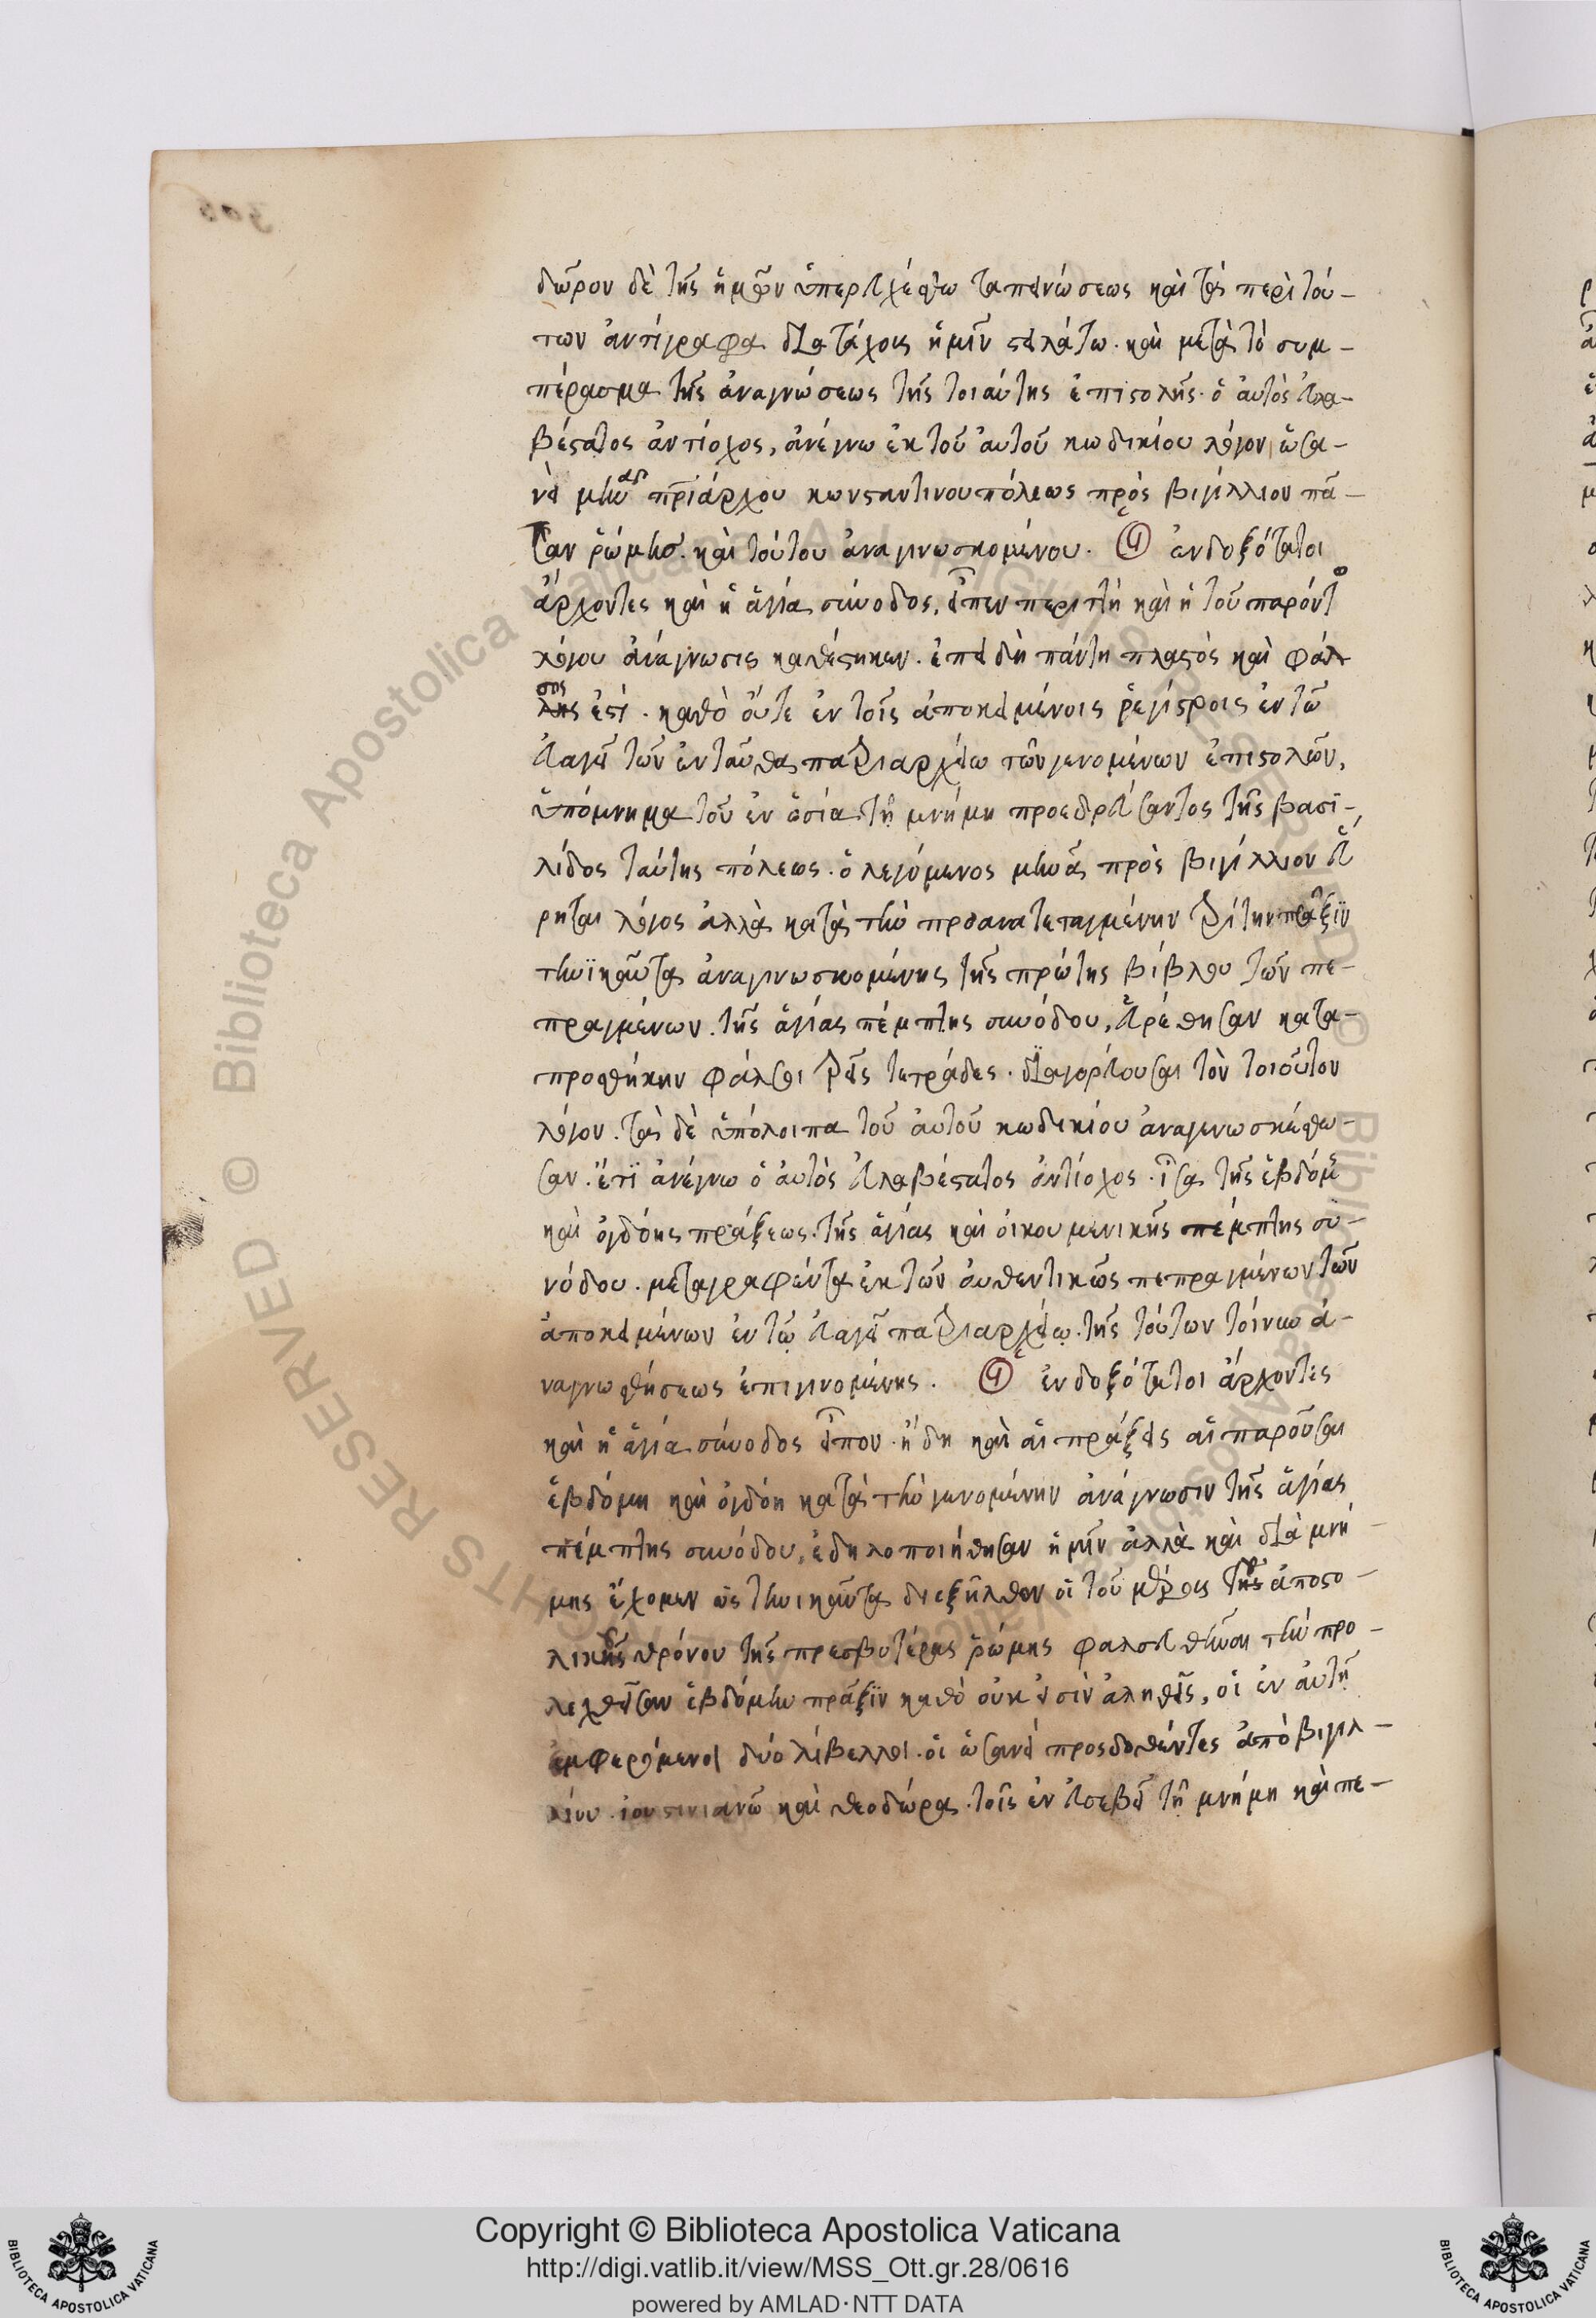 δῶρον δὲ τῆς ἡμῶν ὑπερευχέσθω ταπεινώσεως καὶ τὰ περὶ τού-
των ἀντίγραφα διὰ τάχους ἡμῖν στειλάτω. καὶ μετὰ τὸ συμ-
πέρασμα τῆς ἀναγνώσεως τῆς τοιαύτης ἐπιστολῆς. ὁ αὐτὸς εὐλα-
βέστατος ἀντίοχος, ἀνέγνω ἐκ τοῦ αὐτοῦ κωδικίου λόγον, ὡσα-
νεὶ μηνᾶ πριάρχου κωνσταντινουπόλεως πρὸς βιγίλλιον πά-
παν ῥώμης. καὶ τούτου ἀναγινωσκομένου. οἱ ἐνδοξότατοι
ἄρχοντες καὶ ἡ ἁγία σύνοδος, εἶπεν περιττὴ καὶ ἡ τοῦ παρόντος
λόγου ἀνάγνωσις καθέστηκεν. ἐπειδὴ πάντη πλαστὸς καὶ φάλ
σος ἐστί. καθὸ οὔτε ἐν τοῖς ἀποκειμένοις ῥεγίστροις ἐν τῷ
εὐαγεῖ τῶν ἐνταῦθα πατριαρχείω τῶν γενομένων ἐπιστολῶν,
ὑπόμνημα τοῦ ἐν ὁσία τῇ μνήμη προεδρεύσαντος τῆς βασι-
λίδος ταύτης πόλεως. ὁ λεγόμενος μηνᾶ πρὸς βιγίλλιον εὕ
ρηται λόγος ἀλλὰ κατὰ τὴν προανατεταγμένην τρίτην πρᾶξιν
τηνικαῦτα ἀναγινωσκομένης τῆς πρώτης βίβλου τῶν πε-
πραγμένων. τῆς ἁγίας πέμπτης συνόδου, εὑρέθησαν κατα-
προσθήκην φάλσαι τρεῖς τετράδες. διαγορεύουσαι τὸν τοιοῦτον
λόγον. τὰ δὲ ὑπόλοιπα τοῦ αὐτοῦ κωδικίου ἀναγινωσκέσθω-
σαν. ἔτι ἀνέγνω ὁ αὐτὸς εὐλαβέστατος ἀντίοχος. ἶσα τῆς ἑβδόμης
καὶ ὀγδόης πράξεως. τῆς ἁγίας καὶ οἰκουμενικῆς πέμπτης συ-
νόδου. μεταγραφέντα ἐκ τῶν αὐθεντικῶς πεπραγμένων τῶν
ἀποκειμένων ἐν τῷ εὐαγεῖ πατριαρχείῳ. τῆς τούτων τοίνυν ἀ-
ναγνωσθήσεως ἐπιγινομένης. οἱ ἐνδοξότατοι ἄρχοντες
καὶ ἡ ἁγία σύνοδος εἶπον. ἤδη καὶ αἱ πράξεις αἱ παροῦσαι
ἑβδόμη καὶ ὀγδόη κατὰ τὴν γενομένην ἀνάγνωσιν τῆς ἁγίας
πέμπτης συνόδου, ἐδηλοποιήθησαν ἡμῖν ἀλλὰ καὶ διὰ μνή-
μης ἔχομεν ὡς τηνικαῦτα διεξῆλθον οἱ τοῦ μέρους τοῦ ἀποστο-
λικοῦ θρόνου τῆς πρεσβυτέρας ῥώμης φαλσευθῆναι τὴν προ-
λεχθεῖσαν ἑβδόμην πρᾶξιν καθὸ οὐκ εἰσὶν ἀληθεῖς, οἱ ἐν αὐτῇ
ἐμφερόμενοι δύο λίβελλοι. οἱ ὡσανεὶ προσδοθέντες ἀπὸ βιγιλ-
λίου. ἰουστινιανῶ καὶ θεοδώρα. τοῖς ἐν εὐσεβεῖ τῇ μνήμη καὶ πε-
Copyright © Biblioteca Apostolica Vaticana
http://digi.vatlib.it/view/MSS_Ott.gr.28/0616
powered by AMLAD·NTT DATA